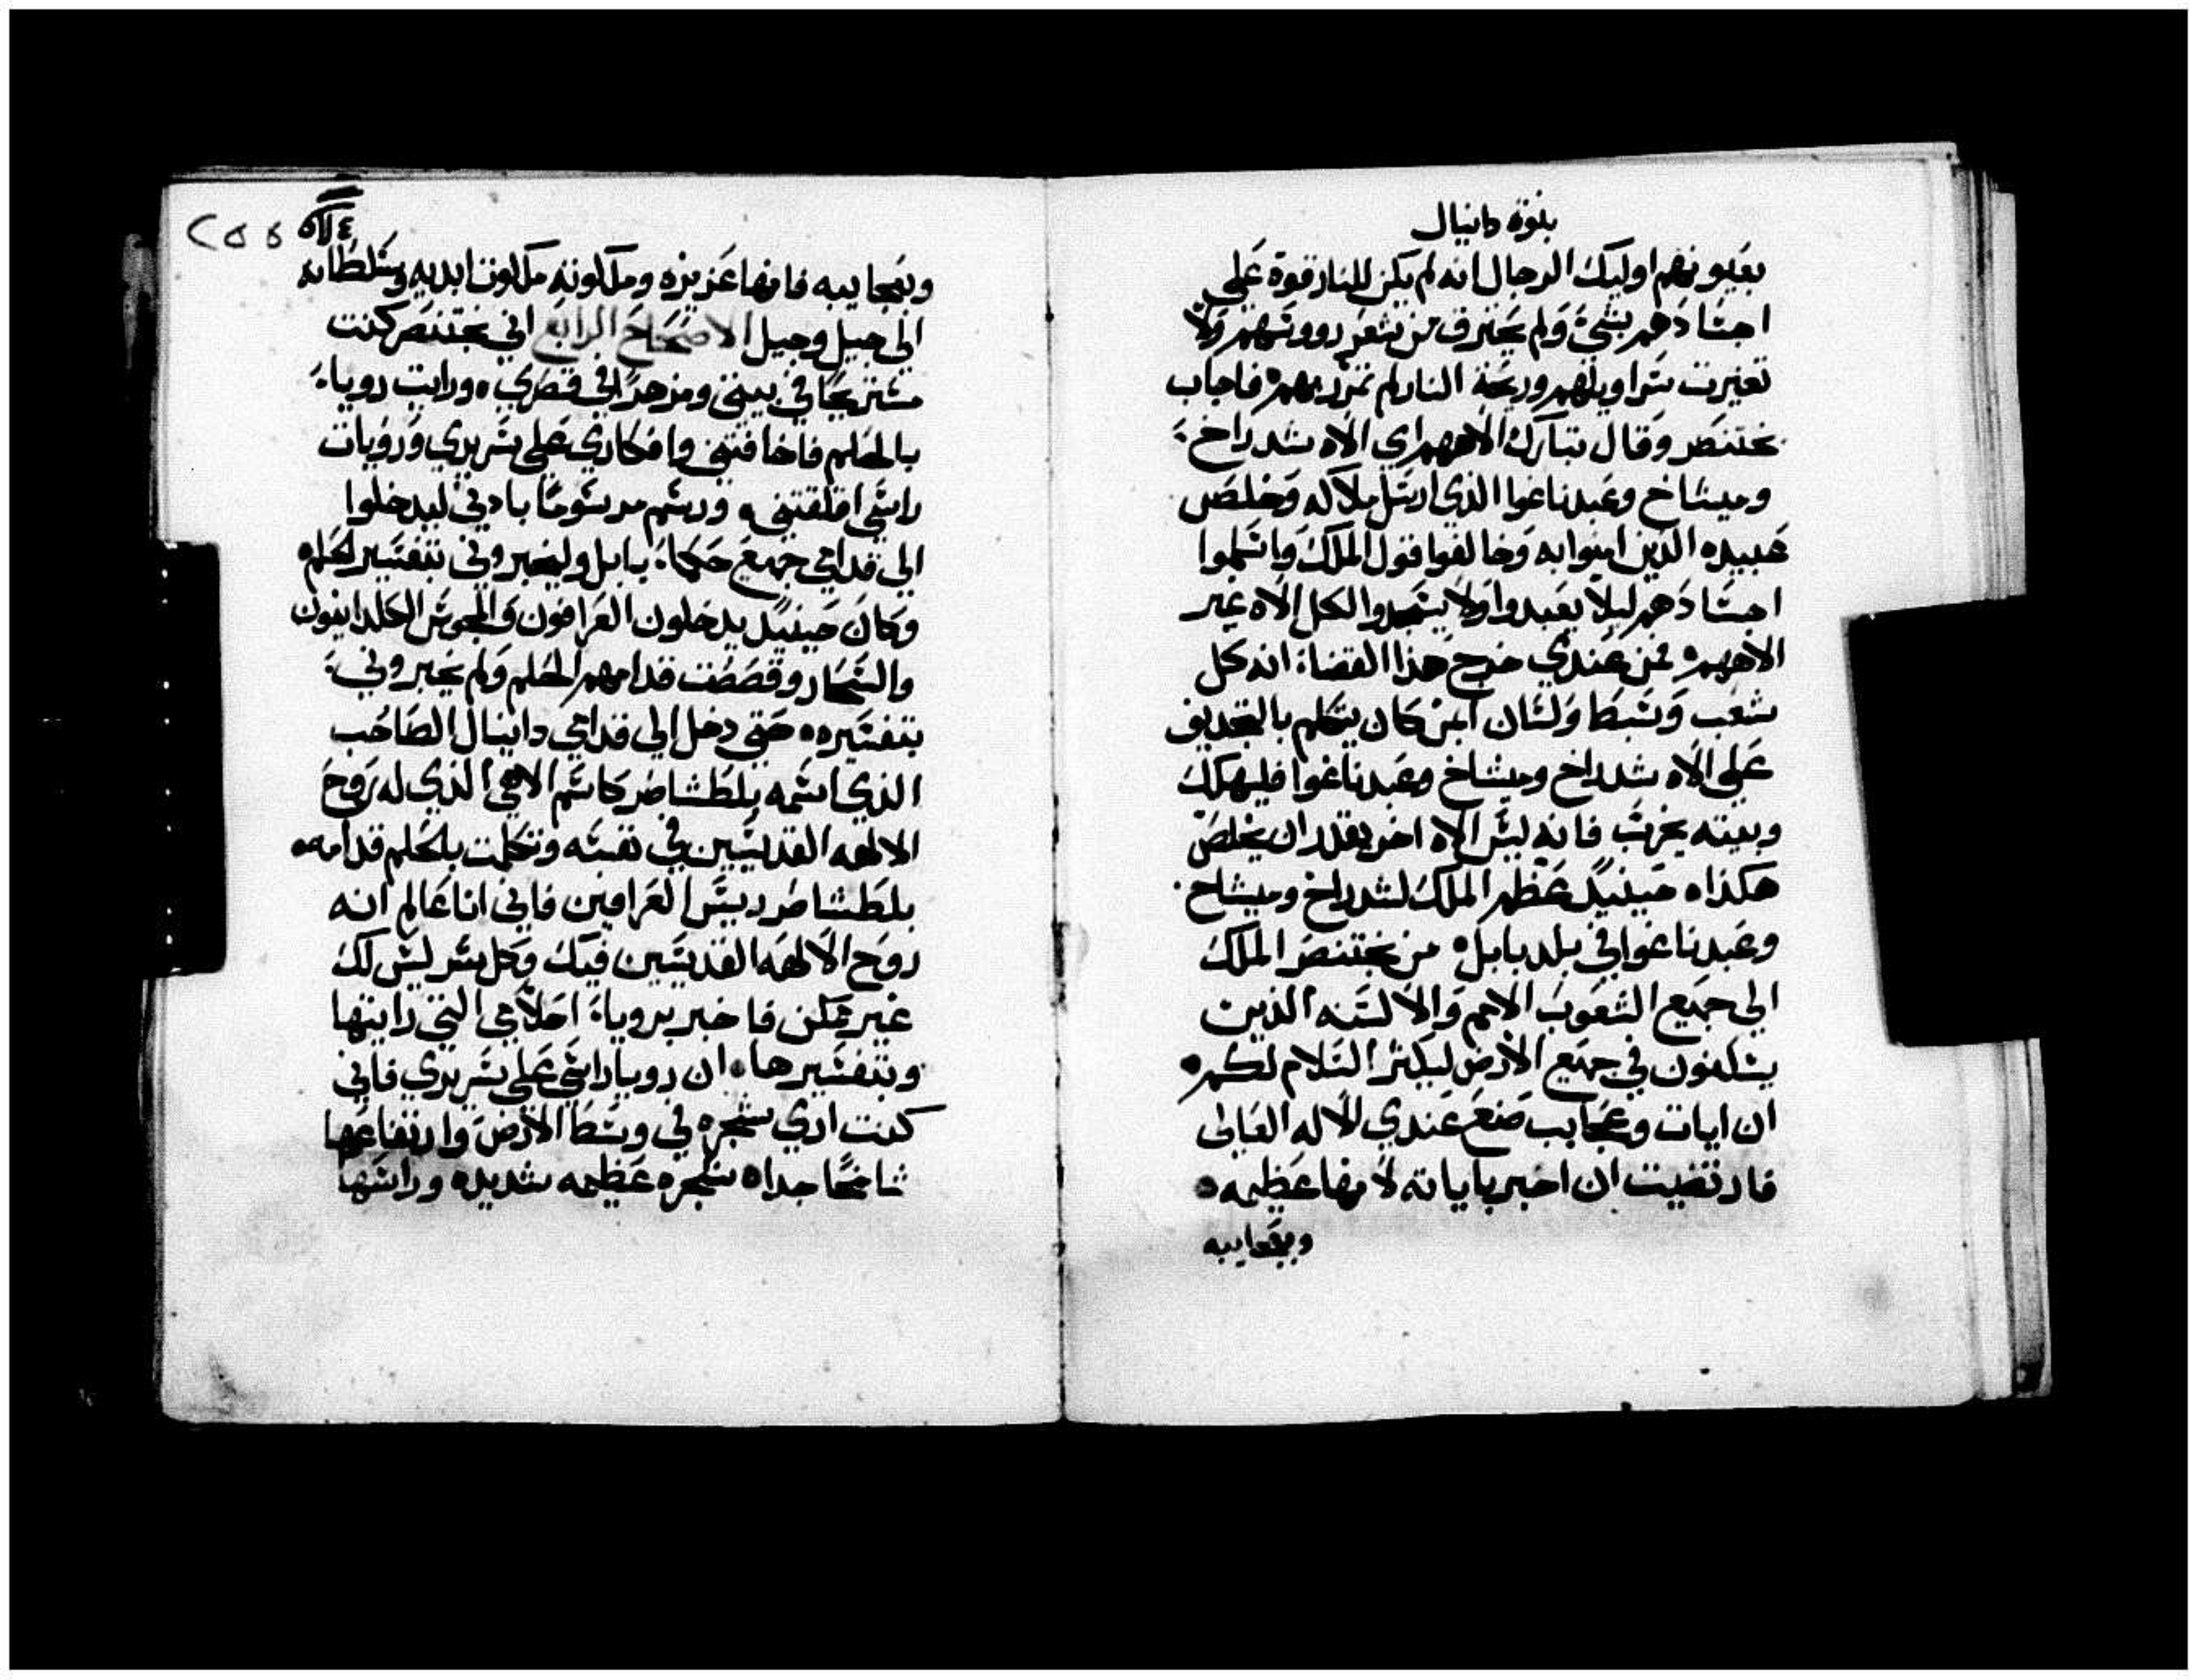 بنوة دانيال
بعيونهم اوليك الرجال انه لم يكن للنار قوة علي
اجسادهم بشيء ولم يحترق من شعر رووسهم ولا
تغيرت سراويلهم وريحة النار لم تمر بهم فاجاب
بختنصر وقال تبارك الاههم اي الاه شدراخ
وميشاخ وعبدناغوا الذي ارسل ملاكه وخلص
عبيده الذين امنوا به وخالفوا قول الملك واسلموا
اجسادهم ليلا يعبدوا ولا يسجدوا لكل الاه غير
الاههم فمن عندي خرج هذا القضاء انه كل
شعب وسبط ولسان اين كان يتكلم بالتجديف
علي الاه شدراخ وميشاخ وعبدناغوا فليهلك
وبيته يخرب فانه ليس الاه اخر يقدر ان يخلص
هكذا حينيد عظم الملك لشدراخ وميشاخ
وعبدناغوا في بلد بابل من بختنصر الملك
الي جميع الشعوب الامم والالسنه الذين
يسكنون في جميع الارض ليكثر السلام لكم
ان ايات وعجايب صنع عندي الاله العالي
فارتضيت ان اخبر باياته لانها عظيمه
وبعجايبه
٢٥٥
وبعجايبه فانها عزيزه وملكوته ملكوت ابديه وسلطانه
الي جيل وجيل الاصحاح الرابع اني بختنصر كنت
مستريحا في بيتي ومزهرا في قصري ورايت روياء
بالحلم فاخافتني وافكاري علي سريري ورويات
راسي اقلقتني ورسم مرسوما بادني ليدخلوا
الي قدامي جميع حكماء بابل وليخبروني بتفسير الحلم
وكان حينيد يدخلون العرافون والمجوس الكلدانيون
والسحار وقصصت قدامهم الحلم ولم يخبروني
بتفسيره حتي دخل الي قدامي دانيال الصاحب
الذي اسمه بلطشاصر كاسم الاهي الذي له روح
الالهه القديسين في نفسه وتكلمت بالحلم قدامه
بلطشاصر رييس العرافين فاني انا عالم انه
روح الالهه القديسين فيك وكل سر ليس لك
غير ممكن فاخبر بروياء احلامي التي رايتها
وبتفسيرها ان رويا راسي علي سريري فاني
كنت اري شجره في وسط الارض وارتفاعها
شامخا جدا شجره عظيمه شديده وراسها